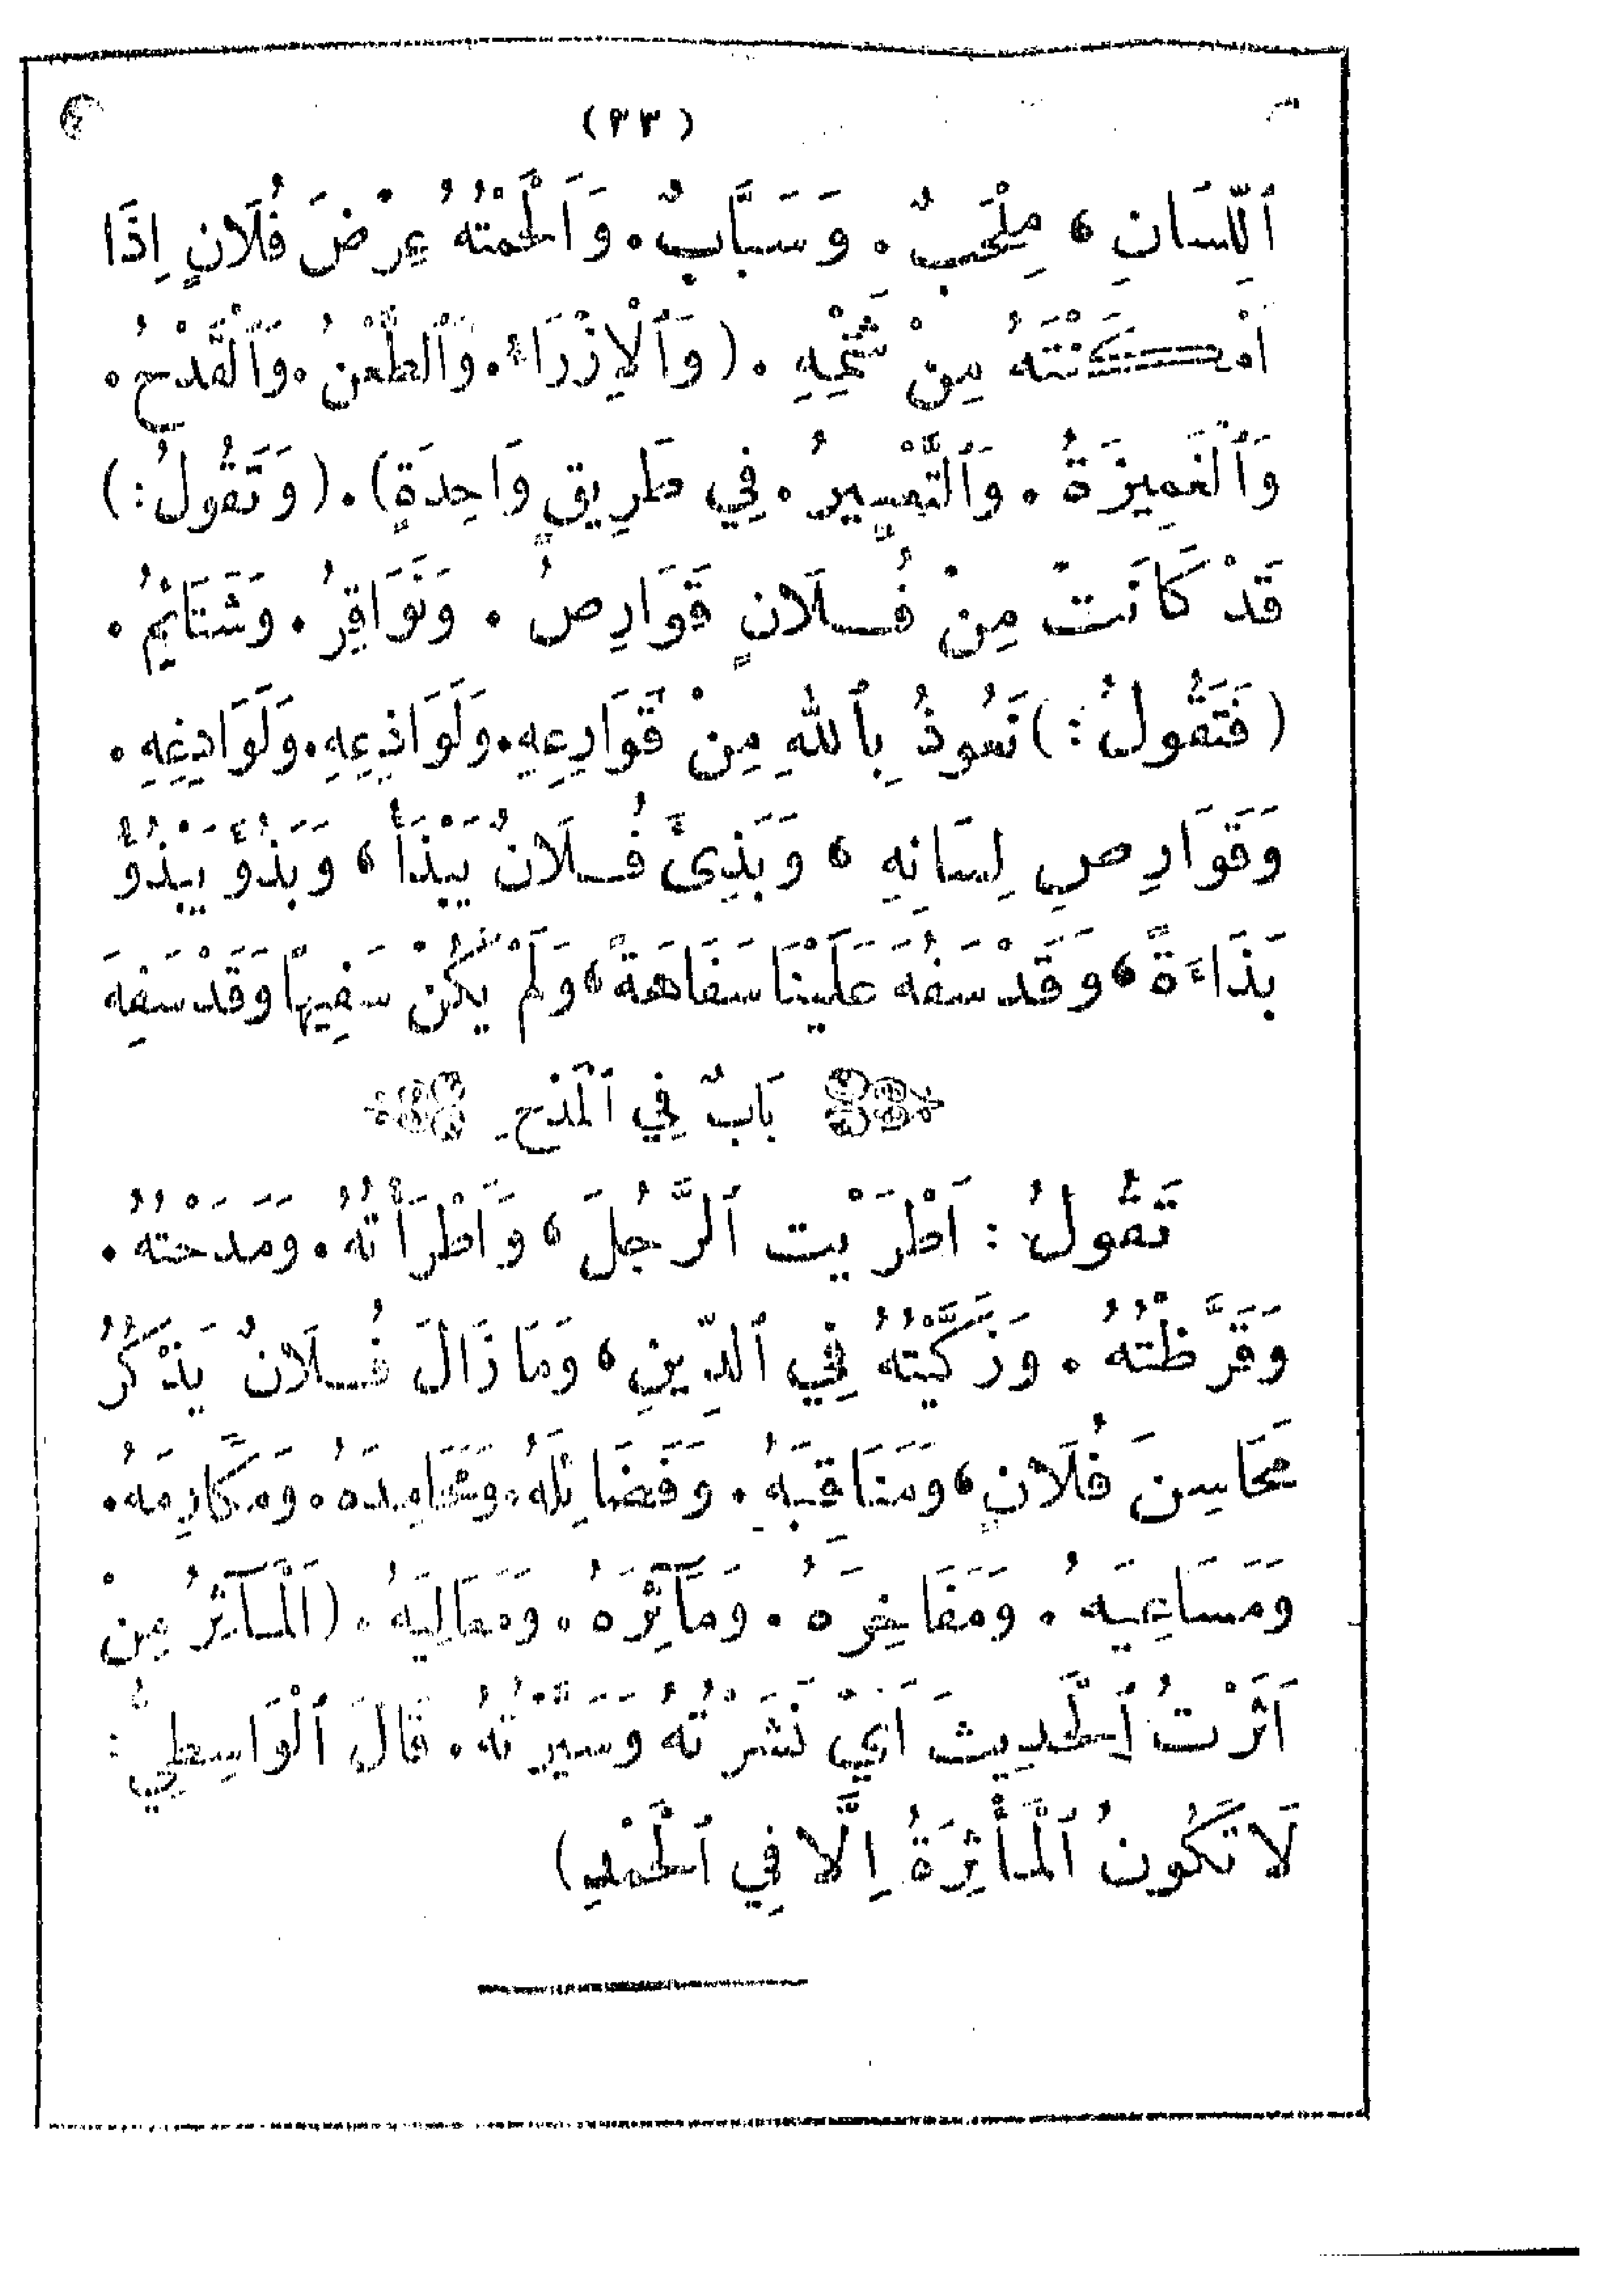 (٣٣)
ٱللِّسَانِ، مِلْحَبٌ. وَسَبَّابٌ. وَأَلْحَمْتُهُ عِرْضَ فُلَانٍ اِذَا
اَمْكَنْتَهُ مِنْ شَتْمِهِ. (وَٱلْاِزْرَاءُ. وَٱلطَّعْنُ. وَٱلْقَدْحُ.
وَٱلْغَمِيزَةُ. وَٱلتَّعْيِيرُ. فِي طَرِيقٍ وَاحِدَةٍ). (وَتَقُولُ:)
قَدْ كَانَتْ مِنْ فُلَانٍ قَوَارِصُ. وَنَوَاقِرُ. وَشَتَائِمُ.
(فَتَقُولُ:) نَعُوذُ بِٱللهِ مِنْ قَوَارِعِهِ. وَلَوَاذِعِهِ. وَلَوَادِغِهِ.
وَقَوَارِصِ لِسَانِهِ، وَبَذِئَ فُلَانٌ يَبْذَأُ، وَبَذُؤَ يَبْذُؤُ
بَذَاءَةً، وَقَدْ سَفُهَ عَلَيْنَا سَفَاهَةً، وَلَمْ يَكُنْ سَفِيهًا وَقَدْ سَفِهَ
بَابٌ فِي ٱلْمَدْحِ
تَقُولُ: اَطْرَيْتُ ٱلرَّجُلَ، وَاَطْرَأْتُهُ. وَمَدَحْتُهُ.
وَقَرَّظْتُهُ. وَزَكَّيْتُهُ فِي ٱلدِّينِ، وَمَا زَالَ فُلَانٌ يَذْكُرُ
مَحَاسِنَ فُلَانٍ، وَمَنَاقِبَهُ. وَفَضَائِلَهُ. وَمَحَامِدَهُ. وَمَكَارِمَهُ.
وَمَسَاعِيَهُ. وَمَفَاخِرَهُ. وَمَآثِرَهُ. وَمَعَالِيَهُ. (اَلْمَآثِرُ مِنْ
اَثَرْتُ ٱلْحَدِيثَ اَيْ نَشَرْتُهُ وَسَيَّرْتُهُ. قَالَ ٱلْوَاسِطِيُّ:
لَا تَكُونُ ٱلْمَأْثِرَةُ اِلَّا فِي ٱلْحَمْدِ)